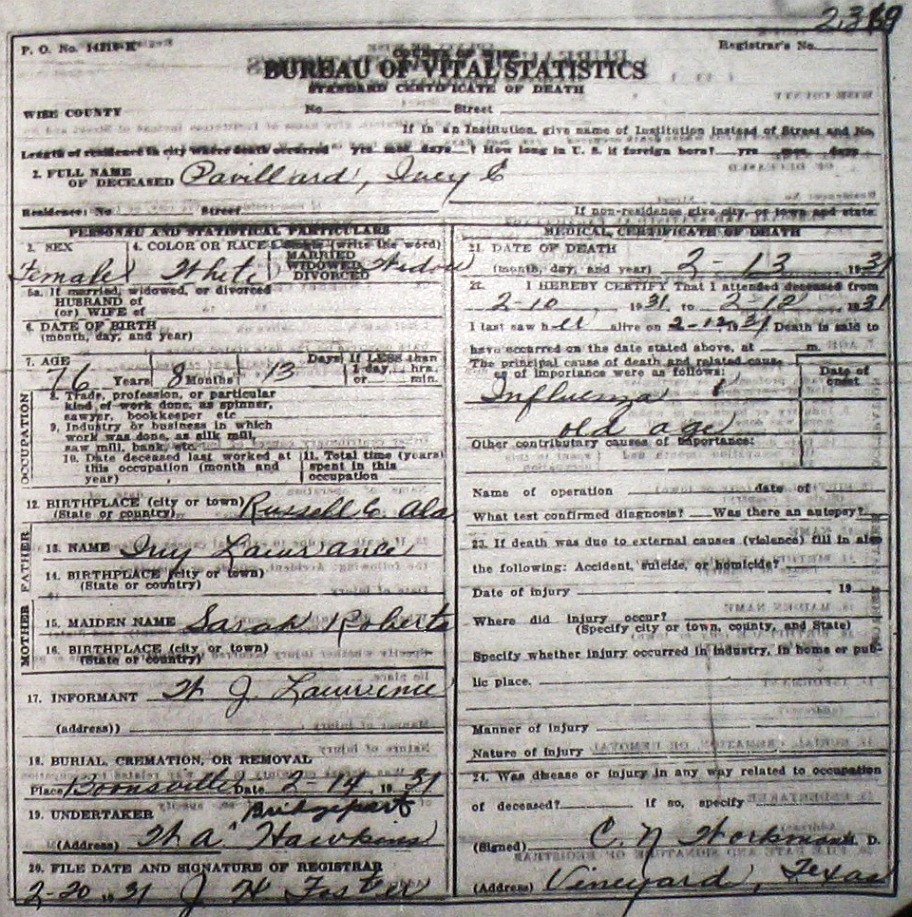 P. O. No. 14218-K
Registrar's No. 2369
BUREAU OF VITAL STATISTICS
STANDARD CERTIFICATE OF DEATH
WISE COUNTY No. Street
If in an Institution, give name of Institution instead of Street and No.
Length of residence in city where death occurred yrs mos days ? How long in U. S. if foreign born? yrs mos. days
2. FULL NAME
OF DECEASED Pavillard, Ivey E
Residence: No Street
If non-residence give city, or town and state
PERSONAL AND STATISTICAL PARTICULARS
3. SEX 4. COLOR OR RACE (write the word)
MARRIED
WIDOWED
DIVORCED
Female White Widow
5a. If married, widowed, or divorced
HUSBAND of
(or) WIFE of
6. DATE OF BIRTH
(month, day, and year)
7. AGE Days If LESS than
1 day, hrs.
76 Years 8 Months 13 or min.
OCCUPATION
8. Trade, profession, or particular
kind of work done, as spinner,
sawyer, bookkeeper etc
9. Industry or business in which
work was done, as silk mill,
saw mill, bank, etc.
10. Date deceased last worked at
this occupation (month and
year)
11. Total time (years)
spent in this
occupation
12. BIRTHPLACE (city or town) Russell C. Ala
(State or country)
FATHER
13. NAME Ivy Lawrance
14. BIRTHPLACE (city or town)
(State or country)
MOTHER
15. MAIDEN NAME Sarah Roberts
16. BIRTHPLACE (city or town)
(State or country)
17. INFORMANT W J. Lawrence
(address))
18. BURIAL, CREMATION, OR REMOVAL
Place Boonsville Date 2-14 1931
19. UNDERTAKER Bridgeport
(Address) W. A. Hawkins
20. FILE DATE AND SIGNATURE OF REGISTRAR
2-20 1931 J H Foster
MEDICAL CERTIFICATE OF DEATH
21. DATE OF DEATH
(month, day, and year) 2-13 1931
22. I HEREBY CERTIFY That I attended deceased from
2-10 1931 to 2-12 1931
I last saw her alive on 2-12 1931 Death is said to
have occurred on the date stated above, at m.
The principal cause of death and related cause
of importance were as follows:
Date of
onset
Influenza
old age
Other contributary causes of importance:
Name of operation date of
What test confirmed diagnosis? Was there an autopsy?
23. If death was due to external causes (violence) fill in also
the following: Accident, suicide, or homicide?
Date of injury 19
Where did injury occur?
(Specify city or town, county, and State)
Specify whether injury occurred in industry, in home or pub-
lic place.
Manner of injury
Nature of injury
24. Was disease or injury in any way related to occupation
of deceased? If so, specify
(Signed) C. N Workman M. D.
(Address) Vineyard, Texas